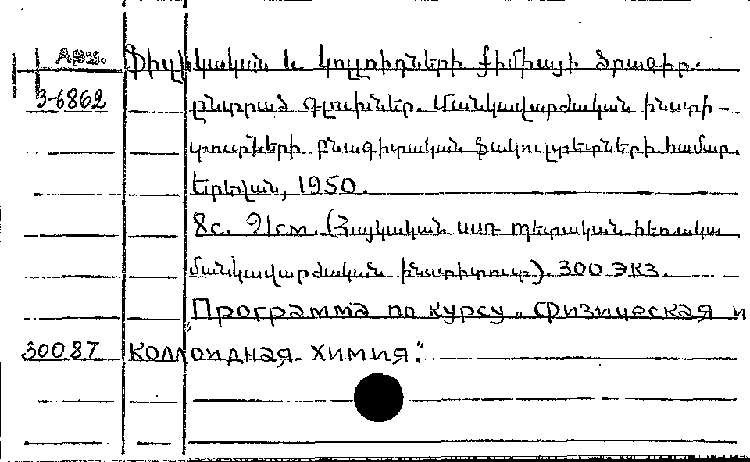 Арм. Ֆիզիկական և կոլոիդների քիմիայի ծրագիր.
3-6862 ընտրած գլուխներ. Մանկավարժական ինստի-
տուտների բնագիտական ֆակուլտետների համար.
Երևան, 1950.
8с. 21см. (Հայկական ՍՍՌ պետական հեռակա
մանկավարժական ինստիտուտ). 300 экз.
Программа по курсу „Физическая и
30087 коллоидная химия".